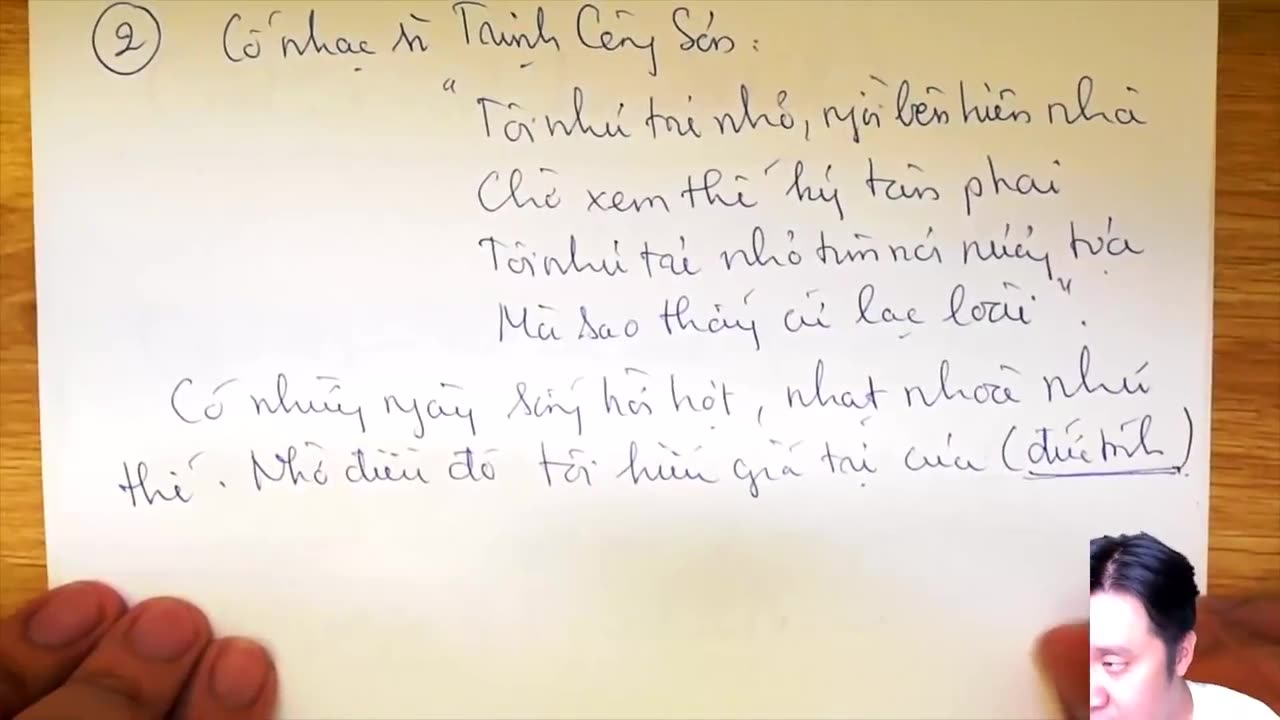 ② Cố nhạc sĩ Trịnh Công Sơn:
"Tôi như trẻ nhỏ, ngồi bên hiên nhà
Chờ xem thế kỷ tàn phai
Tôi như trẻ nhỏ tìm nơi nương tựa
Mà sao thấy cứ lạc loài".
Có những ngày sống hời hợt, nhạt nhoà như
thế. Nhờ điều đó tôi hiểu giá trị của (đức tính)